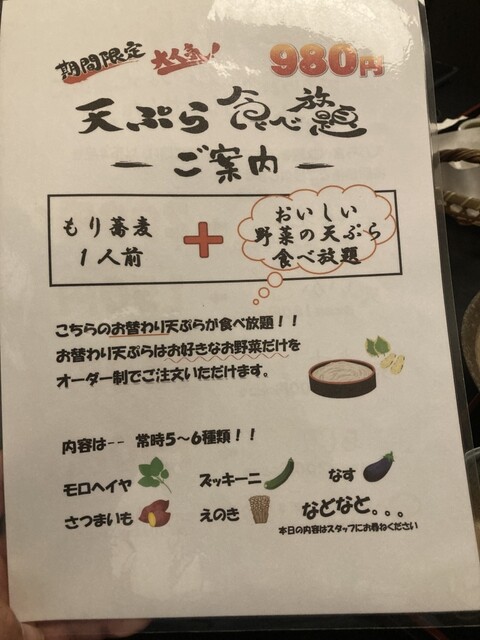 期間限定 大人気！ 980円
天ぷら食べ放題
ー ご案内 ー
もり蕎麦
1人前
+
おいしい
野菜の天ぷら
食べ放題
こちらのお替わり天ぷらが食べ放題！！
お替わり天ぷらはお好きなお野菜だけを
オーダー制でご注文いただけます。
内容は-- 常時5～6種類！！
モロヘイヤ ズッキーニ なす
さつまいも えのき などなど。。。
本日の内容はスタッフにお尋ねください